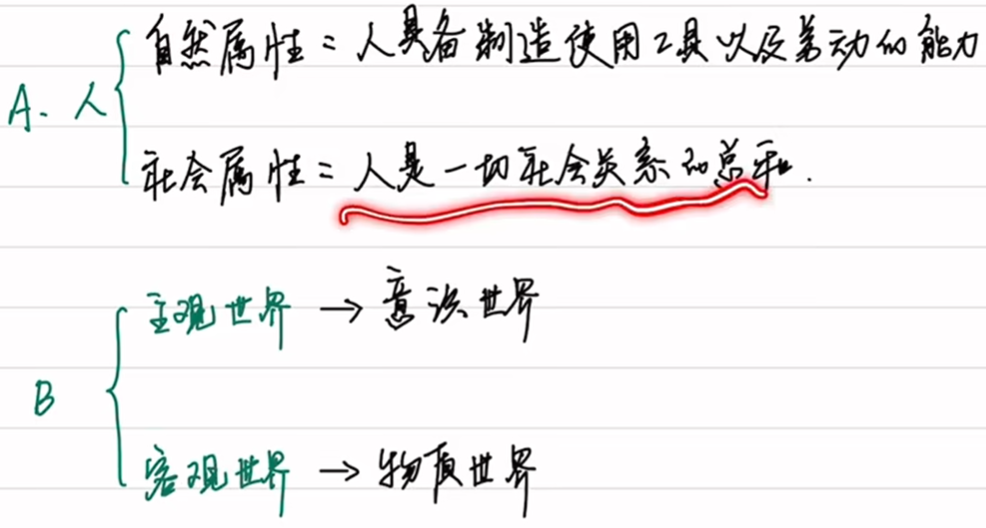 自然属性：人具备制造使用工具以及劳动的能力
A. 人
社会属性：人是一切社会关系的总和.
主观世界 → 意识世界
B
客观世界 → 物质世界